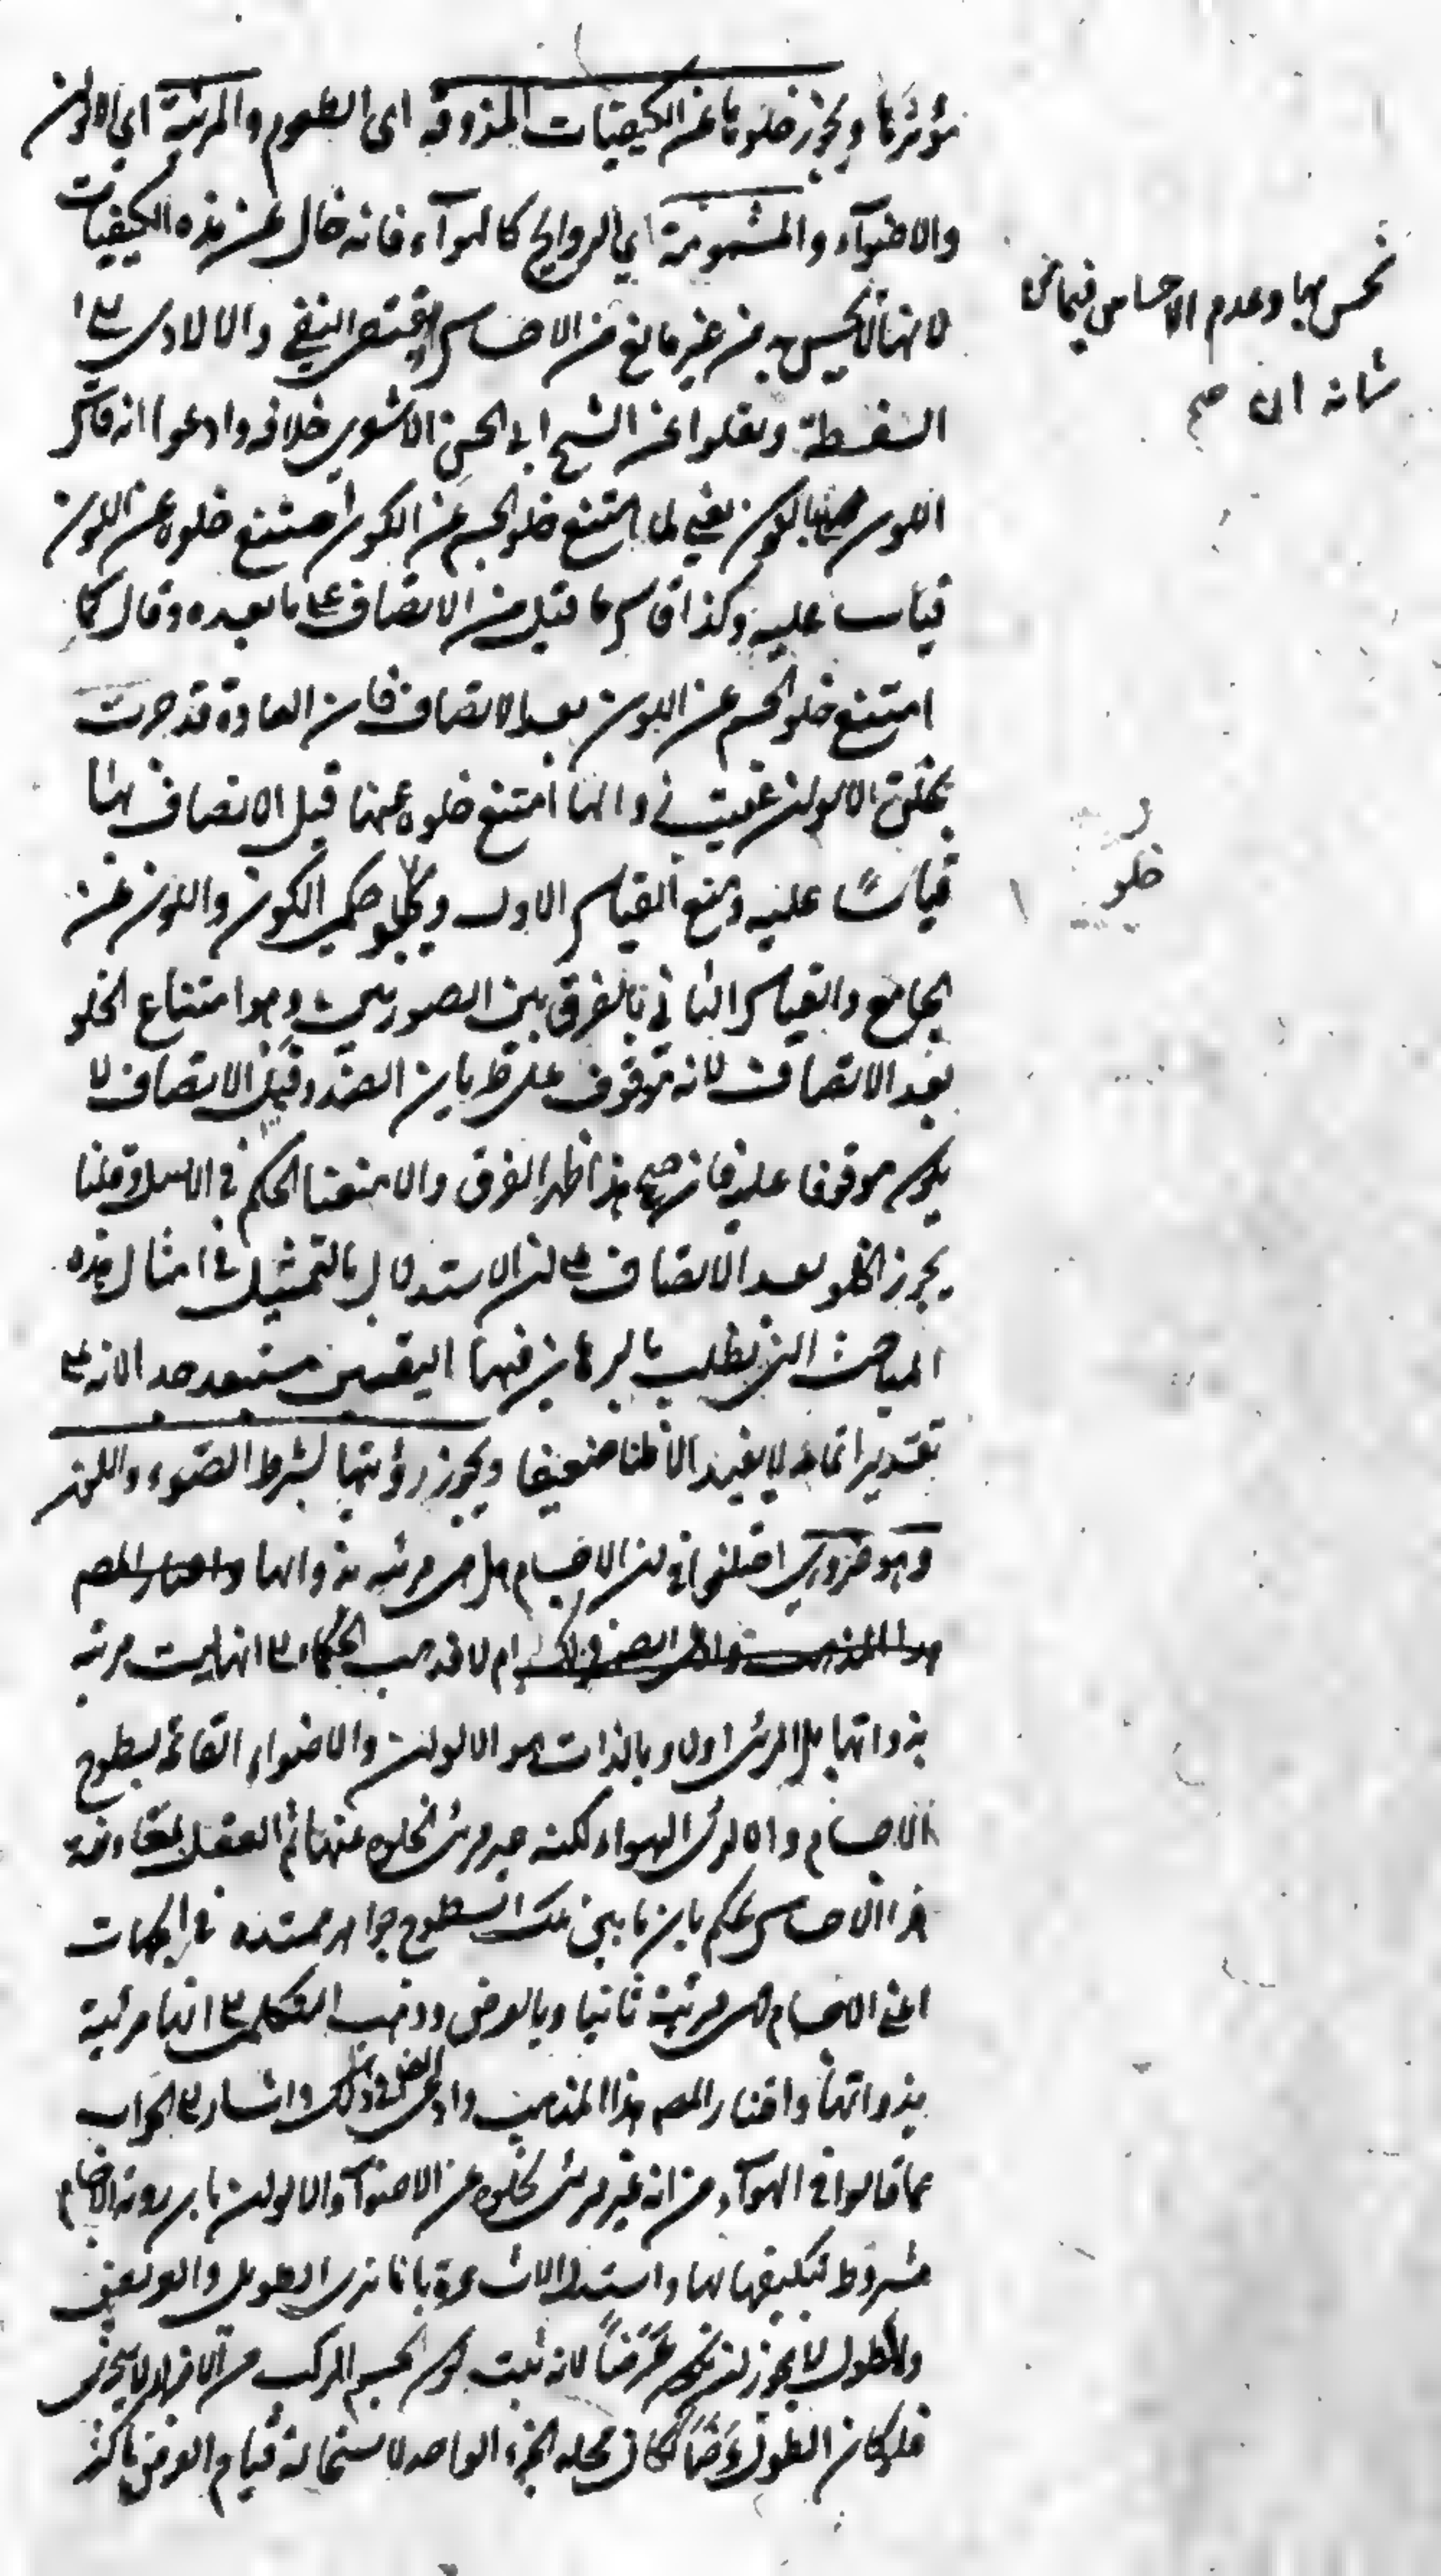 مؤثرها ويجوز خلوها عن الكيفيات المذوقة اى الطعوم والمرئية اى الالوان
والاضوآء والمشمومة اى الروايح كالهوآء فانه خال عن هذه الكيفيات
لانها لا يحس به من غير مانع من الاحساس يقتضى النفى والا لادى الى
السفسطة ونقلوا عن الشيخ ابى الحسن الاشعرى خلافه وادعوا انه قاس
اللون بالكون يعنى لما امتنع خلو الجسم عن الكون امتنع خلوه عن اللون
قياسا عليه وكذا قاس ما قبل من الاتصاف على ما بعده وقال كما
امتنع خلو الجسم عن اللون بعد الاتصاف فان العادة قد جرت
بخلق الالوان عقيب زوالها امتنع خلوه عنها قبل الاتصاف بها
قياسًا عليه ومنع القياس الاول وبخلو حكمى الكون واللون عن
الجامع والقياس الثانى بالفرق بين الصورتين وهو امتناع الخلو
بعد الاتصاف لانه موقوف على طريان الضد وقبل الاتصاف لا
يكون موقوفا عليه فان صح هذا ظهر الفرق والا منعنا الحكم فى الاصل وقلنا
يجوز الخلو بعد الاتصاف على ان الاستدلال بالتمثيل فى امثال هذه
المباحث التى يطلب بالبرهان فيها اليقين مستبعد جدا لانه على
تقدير اتمامه لا يفيد الا ظنا ضعيفا ويجوز رؤيتها بشرط الضوء واللون
وهو ضرورى اختلفوا فى ان الاجسام هل هى مرئية بذواتها واختار المصم
هذا المذهب وادعى الضرورة ام لا فذهب الحكماء الى انها ليست مرئية
بذواتها بل المرئى اولا وبالذات هو الالوان والاضواء القائمة بسطوح
الاجسام والا لرئى الهواء لكنه غير مرئى لخلوه عنها ثم العقل بمعاونة
هذا الاحساس يحكم بان ما بين تلك السطوح جواهر ممتدة فى الجهات
اعنى الاجسام فهى مرئية ثانيا وبالعرض وذهب المتكلمون الى انها مرئية
بذواتها واختار المصم هذا المذهب وادعى الضرورة فى ذلك واشار الى الجواب
عما قالوا فى الهوآء من انه غير مرئى لخلوه عن الاضوآء والالوان بان رؤية الاجسام
مشروط بتكيفها بها واستدل الاشاعرة بانا نرى الطويل والعريض
والطول لا يجوز ان يكون عَرَضًا لانه ثبت كون الجسم المركب من الاجزاء لا يتجزى
فلو كان الطول عَرَضًا لكان محله الجزء الواحد لاستحالة قيام العرض باكثر
نحس بها وعدم الاحساس فيما من
شانه ان صح
خلو